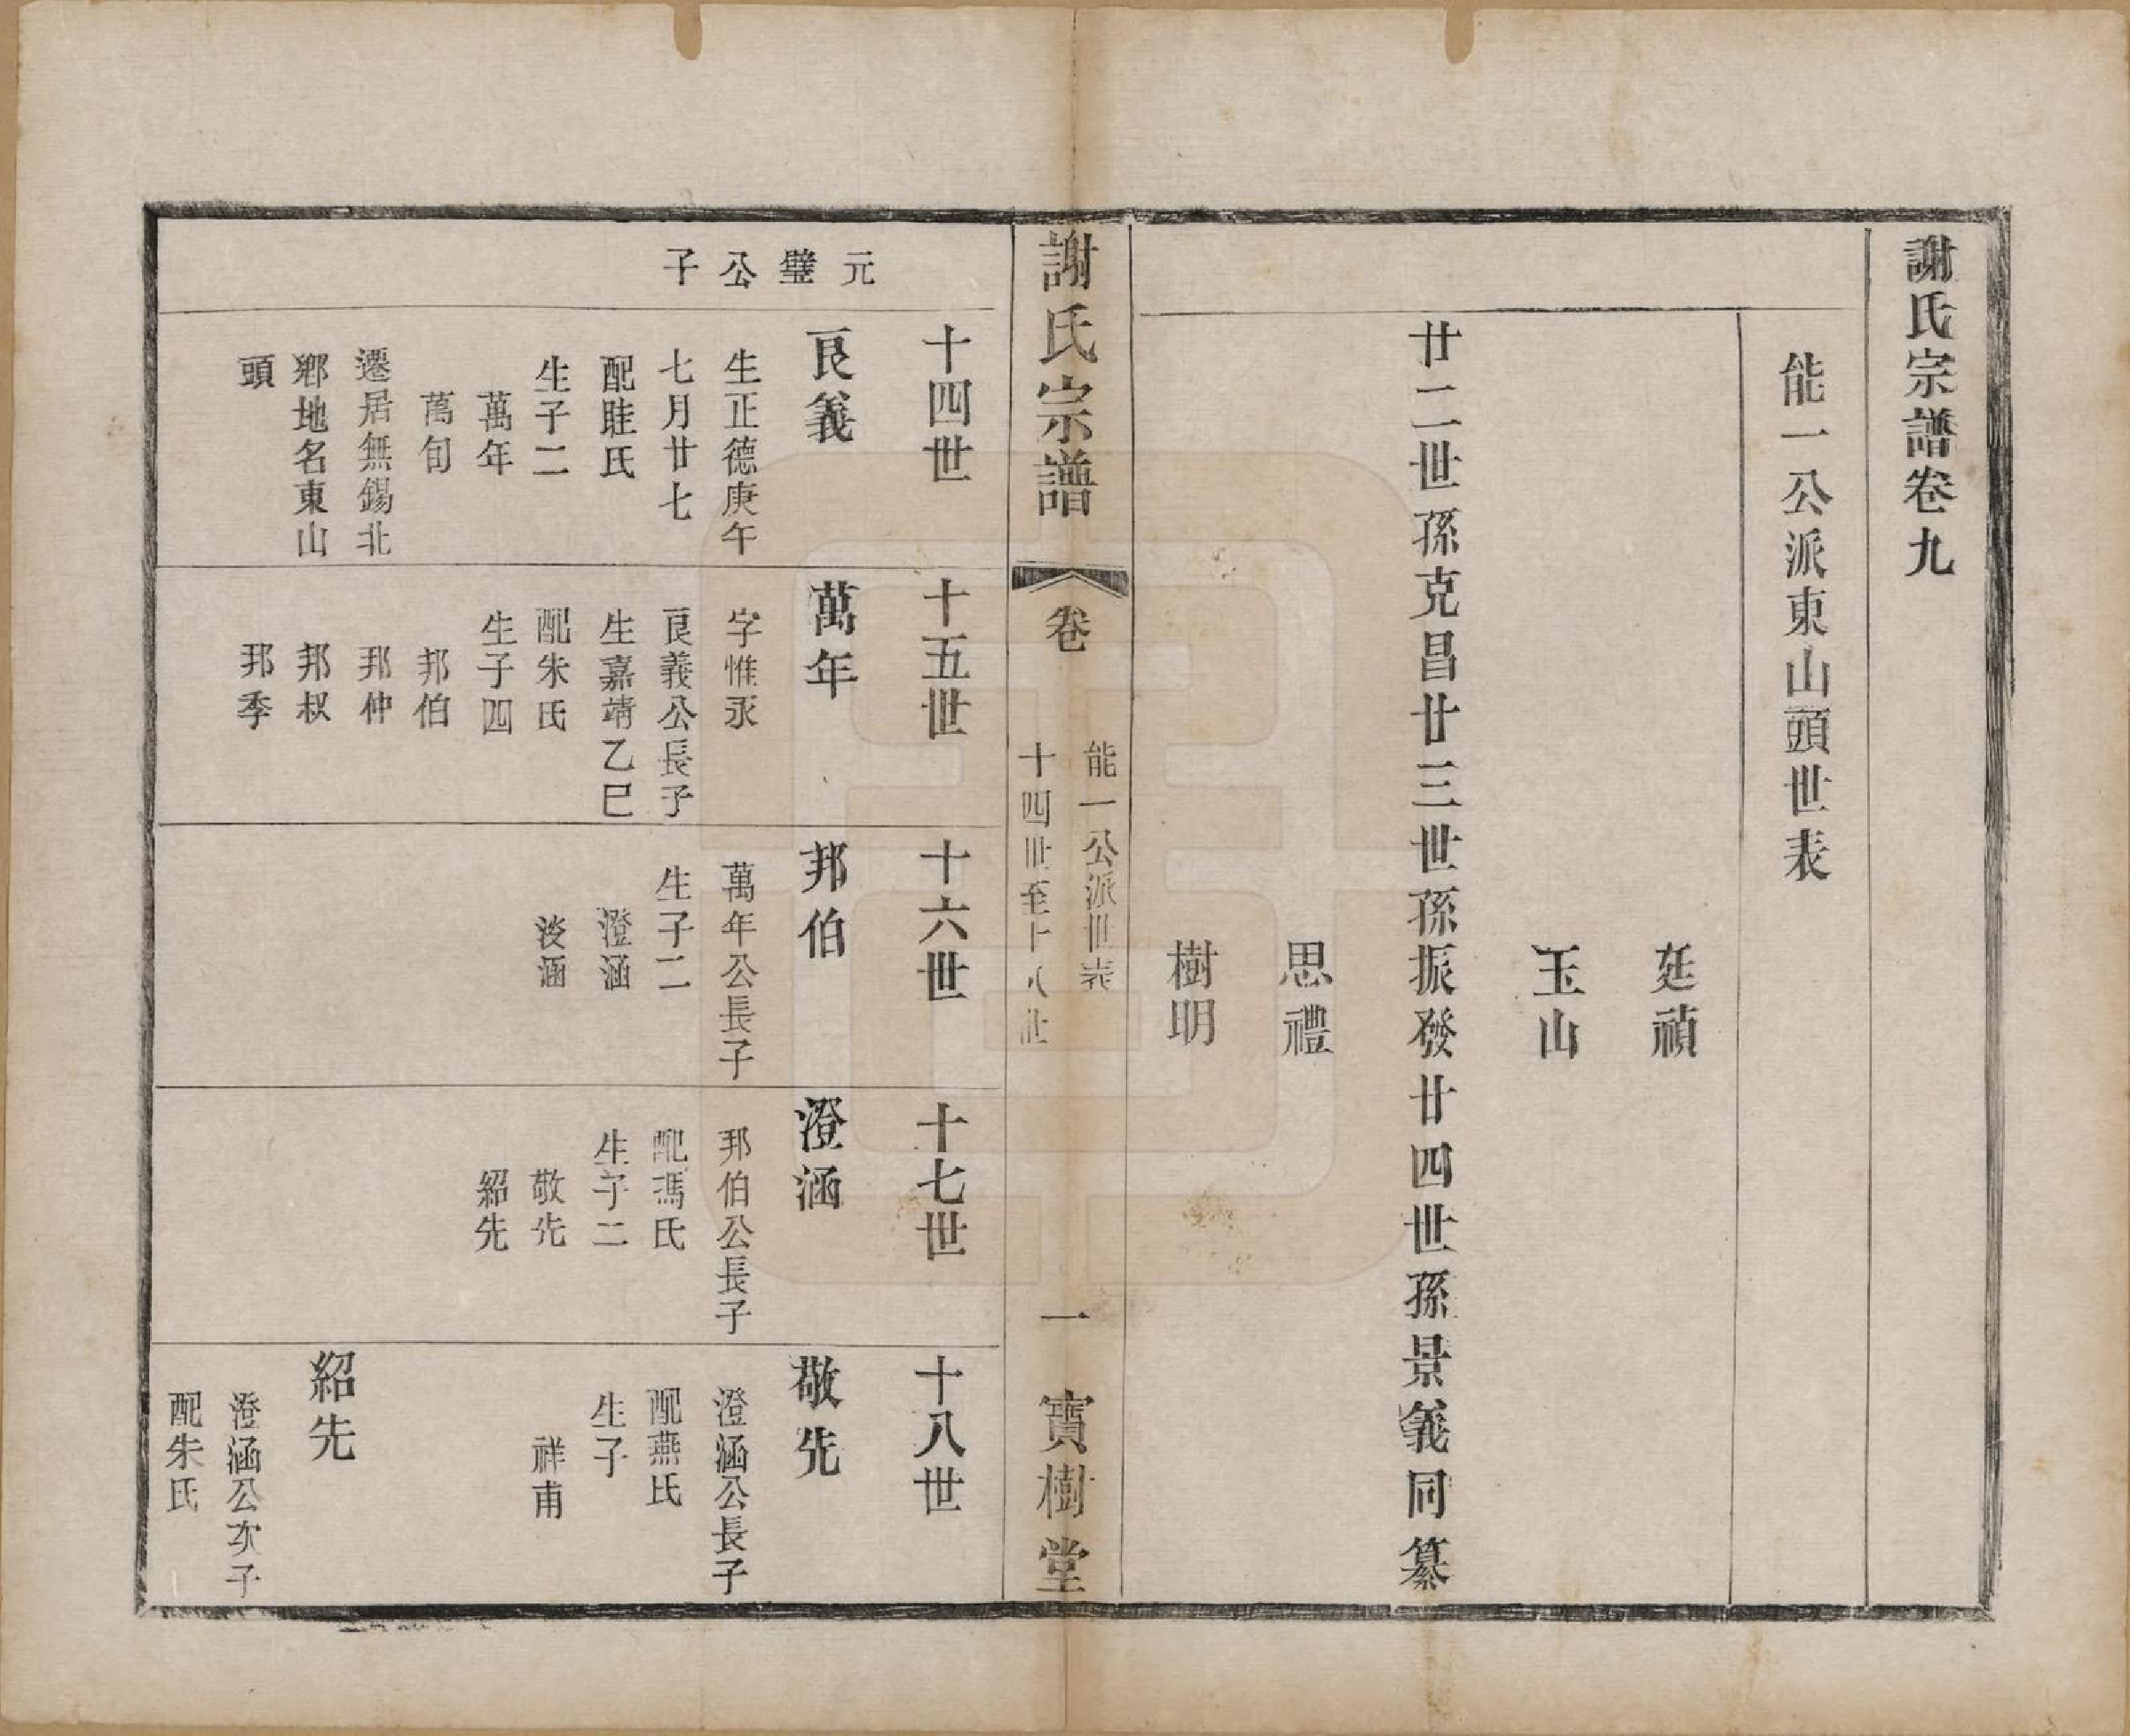 謝氏宗譜卷九
能一公派東山頭世表
廷禎
玉山
廿二世孫克昌廿三世孫振發廿四世孫景義同纂
思禮
樹明
謝氏宗譜
卷
能一公派世表
十四世至十八世
一
寶樹堂
元璧公子
十四世
良義
生正德庚午
七月廿七
配眭氏
生子二
萬年
萬旬
遷居無錫北
鄉地名東山
頭
十五世
萬年
字惟永
良義公長子
生嘉靖乙巳
配朱氏
生子四
邦伯
邦仲
邦叔
邦季
十六世
邦伯
萬年公長子
生子二
澄涵
淡涵
十七世
澄涵
邦伯公長子
配馮氏
生子二
敬先
紹先
十八世
敬先
澄涵公長子
配燕氏
生子
祥甫
紹先
澄涵公次子
配朱氏